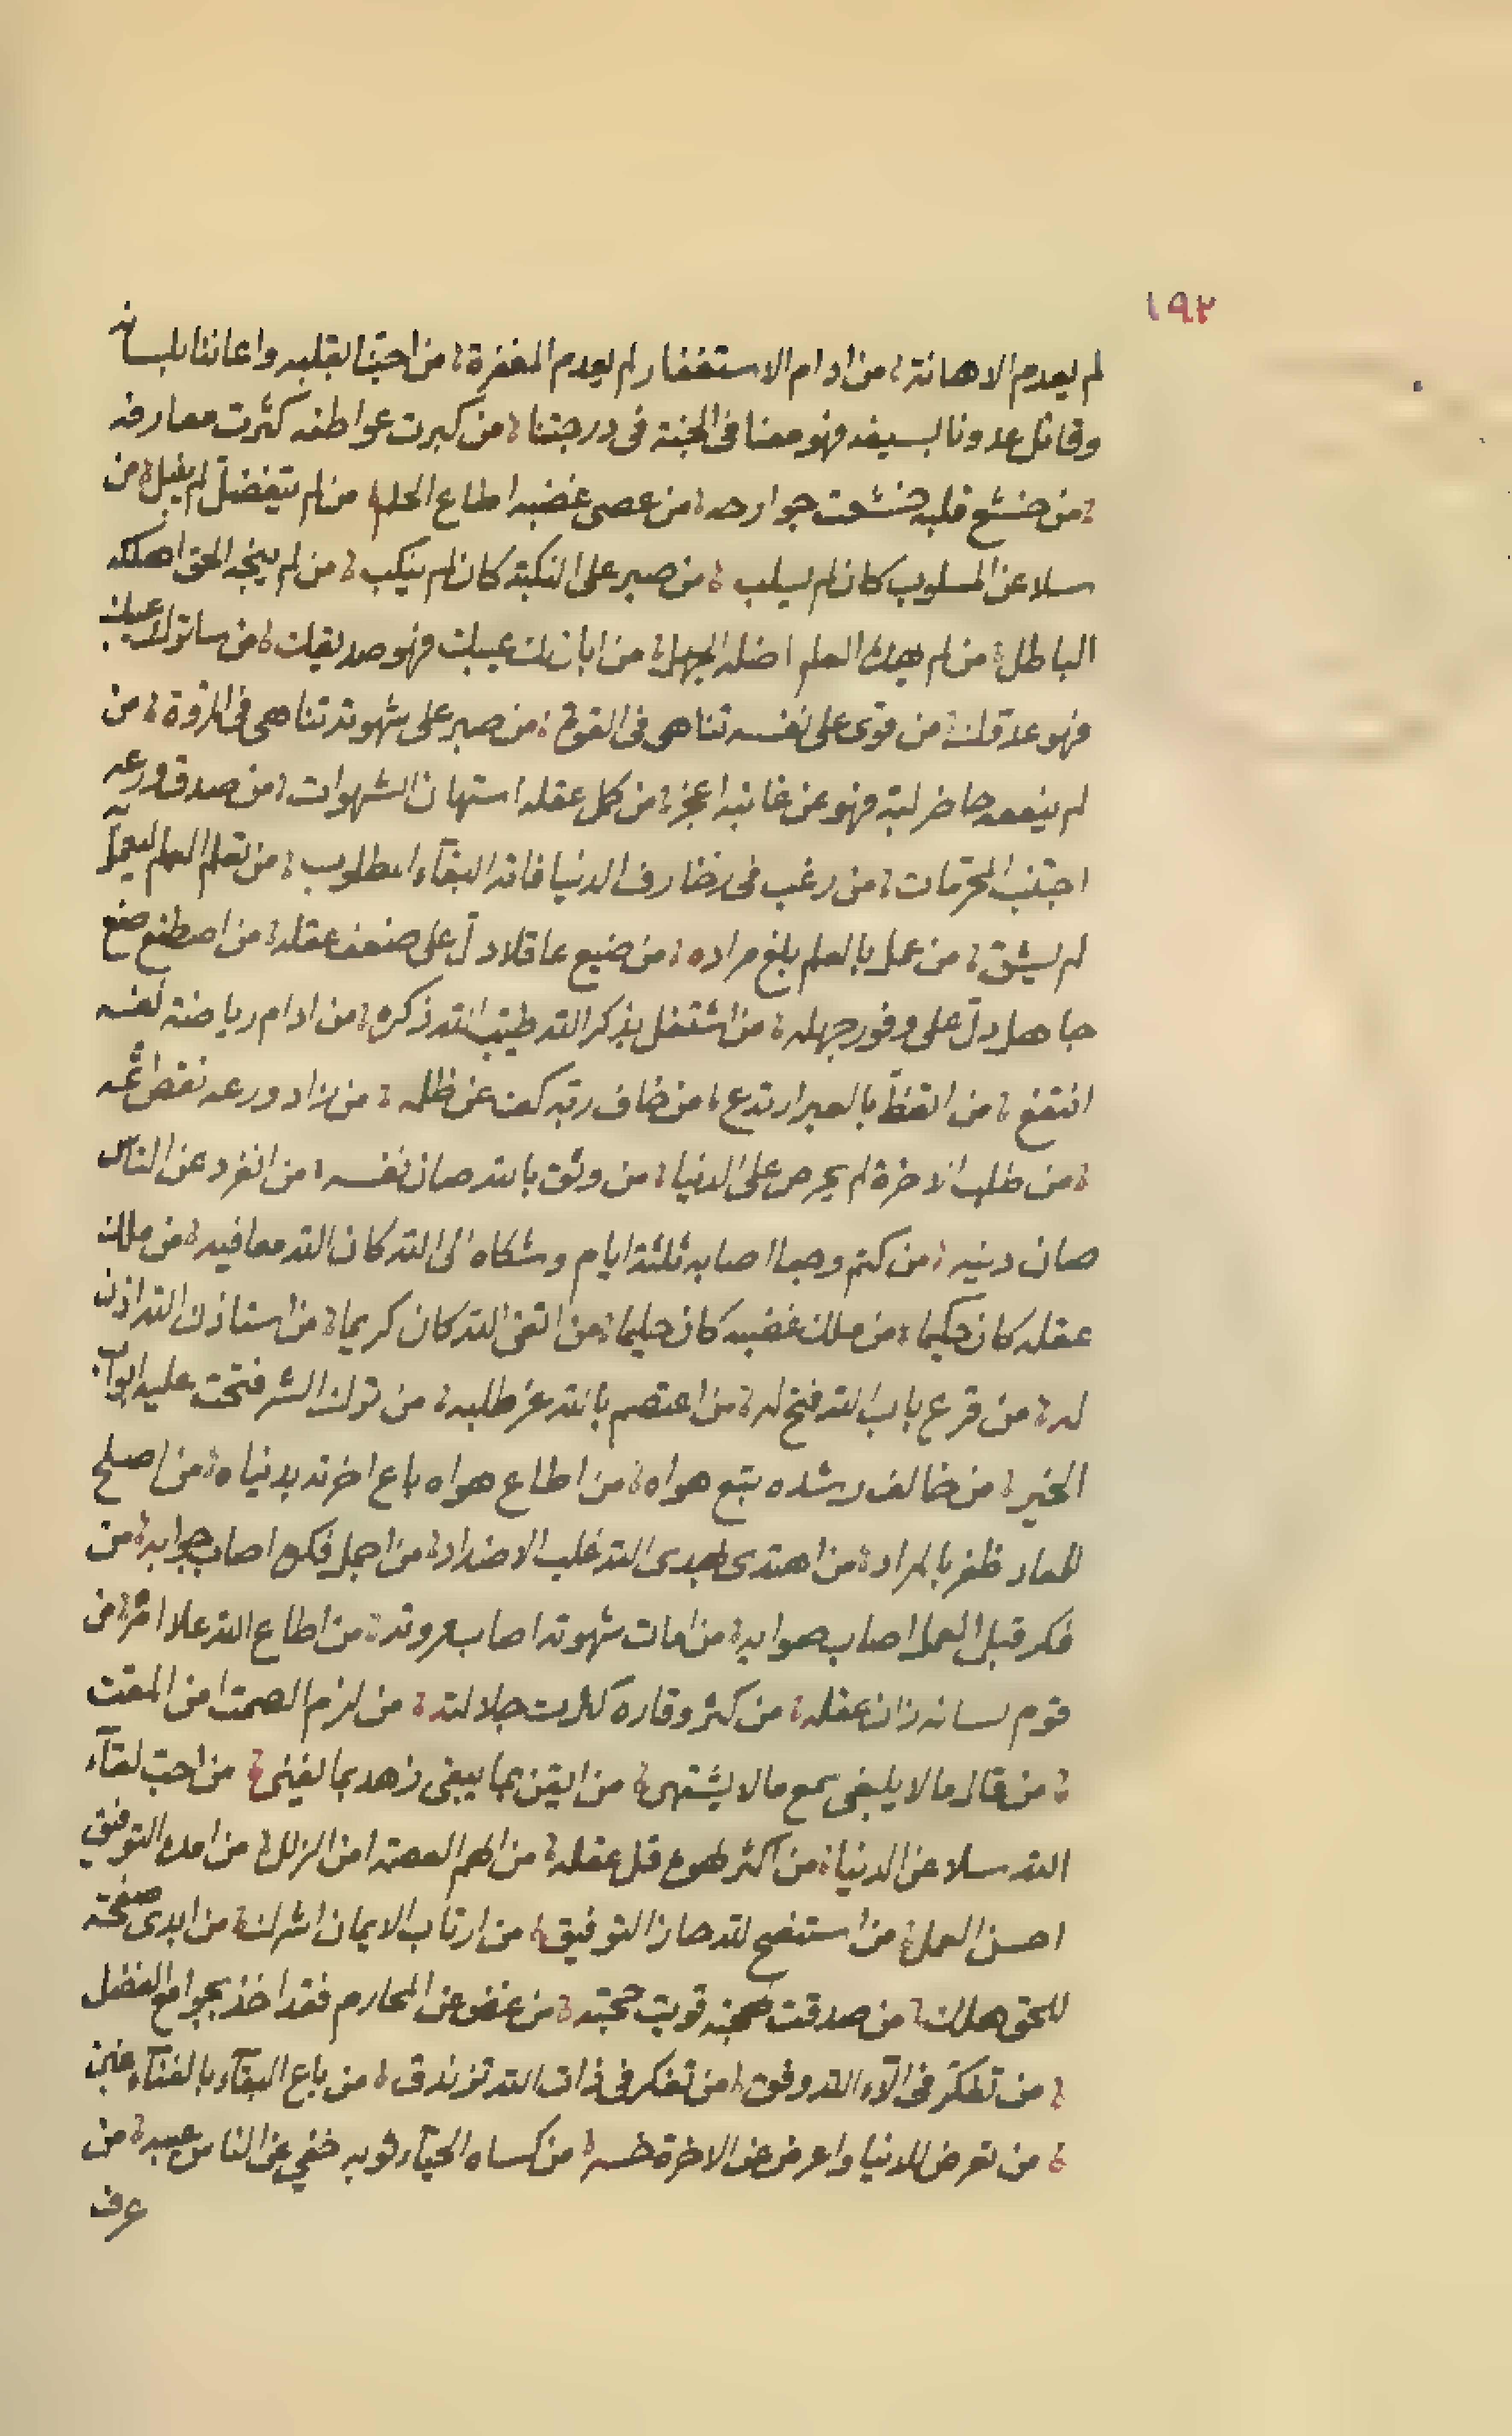 ١٩٢
لم يعدم الاهانة؛ من ادام الاستغفار لم يعدم المغفرة؛ من احبنا بقلبه واعاننا بلسانه
وقاتل عدونا بسيفه فهو معنا فى الجنة فى درجتنا؛ من كبرت عواطفه كثرت معارفه
؛ من خشع قلبه خشعت جوارحه؛ من عصى غضبه اطاع الحلم؛ من لم يتفضل لم ينبل؛ من
سلا عن المسلوب كان لم يسلب؛ من صبر على النكبة كان لم ينكب؛ من لم ينجه الحق اهلكه
الباطل؛ من لم يهده العلم اضله الجهل؛ من ابان لك عيبك فهو صديقك؛ من ساترك عيبك
فهو عدوك؛ من قوى على نفسه تناهى فى القوة؛ من صبر على شهوته تناهى فى المروة؛ من
لم ينفعه حاضر لبه فهو عن غائبه اعجز؛ من كمل عقله استهان الشهوات؛ من صدق ورعه
اجتنب المحرمات؛ من رغب فى زخارف الدنيا فاته البقآء المطلوب؛ من تعلم العلم للعمل
لم يشق؛ من عمل بالعلم بلغ مراده؛ من ضيع عاقلا دلّ على ضعف عقله؛ من اصطنع
جاهل دلّ على وفور جهله؛ من اشتغل بذكر الله طيب الله ذكره؛ من ادام رياضة نفسه
انتفع؛ من اتعظّ بالعبر ارتدع؛ من خاف ربه كف عن ظلمه؛ من زاد ورعه نقص اثمه
؛ من طلب الاخرة لم يحرص على الدنيا؛ من وثق بالله صان نفسه؛ من انفرد عن الناس
صان دينه؛ من كتم وجعا اصابه ثلثة ايام وشكاه الى الله كان الله معافيه؛ من ملك
عقله كان حكيما؛ من ملك غضبه كان حليما؛ من اتقى الله كان كريما؛ من استاذن الله اذن
له؛ من قرع باب الله فتح له؛ من اعتصم بالله عز طلبه؛ من ترك الشر فتحت عليه ابواب
الخير؛ من خالف رشده تبع هواه؛ من اطاع هواه باع اخرته بدنياه؛ من اصلح
المعاد ظفر بالمراد؛ من اهتدى بهدى الله غلب الاضداد؛ من اجمل فكره اصاب جوابه؛ من
فكر قبل العمل اصاب صوابه؛ من امات شهوته اصاب مروته؛ من اطاع الله علا امره؛ من
قوم لسانه زان عقله؛ من كثر وقاره كثرت جلالته؛ من لزم الصمت امن المقت
؛ من قال ما لا ينبغى سمع ما لا يشتهى؛ من ايقن بما يبقى زهد بما يفنى؛ من احب لقآء
الله سلا عن الدنيا؛ من اكثر لهوه قل عقله؛ من الهم العصمة امن الزلل؛ من امده التوفيق
احسن العمل؛ من استنصح لله حاز التوفيق؛ من ارتاب الايمان اشرك؛ من ابدى صفحته
للحق هلك؛ من صدقت قويت حجته؛ من غض عن المحارم فقد اخذ بجوامع الفضل
؛ من تفكر فى آلآء الله وفق؛ من تفكر فى ذات الله تزندق؛ من باع البقآء بالفنآء غبن
؛ من تعرض للدنيا واعرض عن الاخرة خسر؛ من كساه الحيآء ثوبه خفي عن الناس عيبه؛ من
عرف